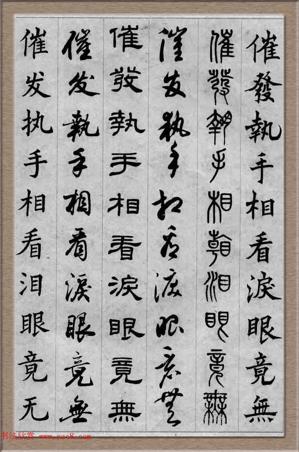 催發執手相看淚眼竟無
催發執手相看淚眼竟無
催发执手相看泪眼竟无
催發執手相看淚眼竟無
催发執手相看淚眼竟無
催发执手相看泪眼竟无
书法欣赏